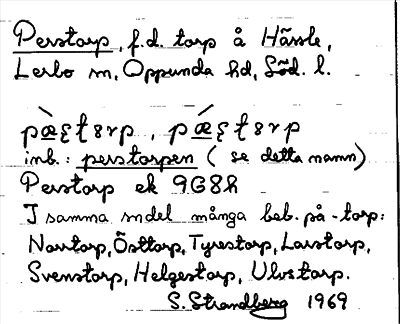 Perstorp, f.d. torp å Hässle,
Lerbo sn, Oppunda hd, Söd. l.
inb.: perstorpen (se detta namn)
Perstorp ek 9G8h
I samma sndel många beb. på -torp:
Norrtorp, Östtorp, Tyrestorp, Larstorp,
Svenstorp, Helgestorp, Ulvstorp.
S. Strandberg 1969